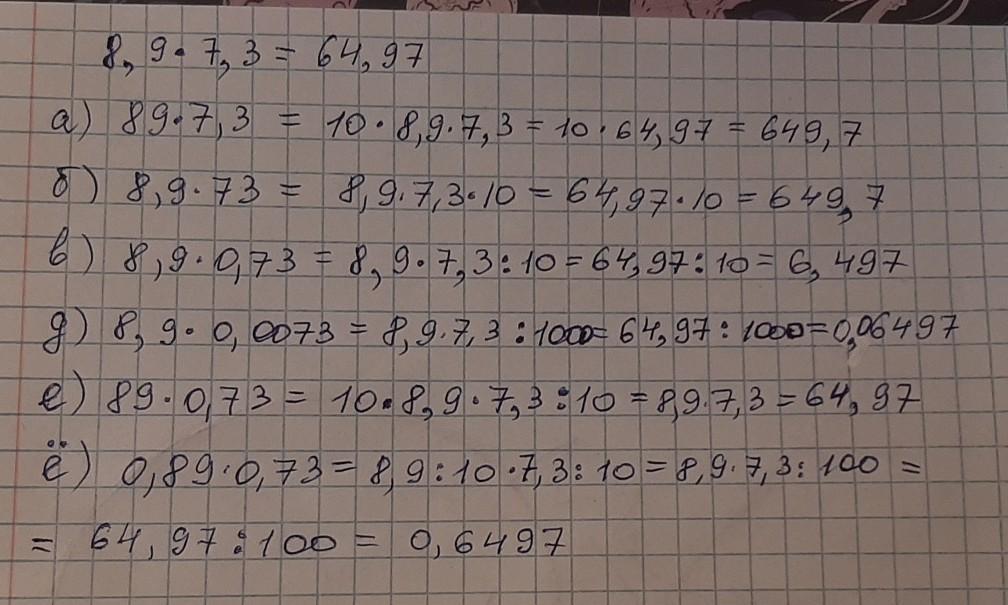 8,9·7,3 = 64,97
а) 89·7,3 = 10·8,9·7,3 = 10·64,97 = 649,7
б) 8,9·73 = 8,9·7,3·10 = 64,97·10 = 649,7
в) 8,9·0,73 = 8,9·7,3:10 = 64,97:10 = 6,497
д) 8,9·0,0073 = 8,9·7,3:1000 = 64,97:1000 = 0,06497
е) 89·0,73 = 10·8,9·7,3:10 = 8,9·7,3 = 64,97
ё) 0,89·0,73 = 8,9:10·7,3:10 = 8,9·7,3:100 =
= 64,97:100 = 0,6497